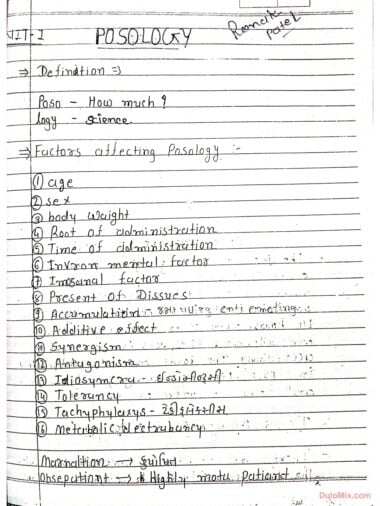 UIT-I
POSOLOGY
Romatik
Patel
⇒ Definition ⇒
Poso - How much ?
logy - science
⇒ Factors affecting Posology :-
① age
② sex
③ body weight
④ Root of administration
⑤ Time of administration
⑥ Invron mental factor
⑦ Imosanal factor
⑧ Present of Dissues
⑨ Accumulation -
⑩ Additive effect
⑪ Synergism
⑫ Antagonism
⑬ Idiosymcru -
⑭ Tolerancy
⑮ Tachyphylasys -
⑯ Meterbolic
Marnaltion →
→ Highly motu patiand
DuloMix.com